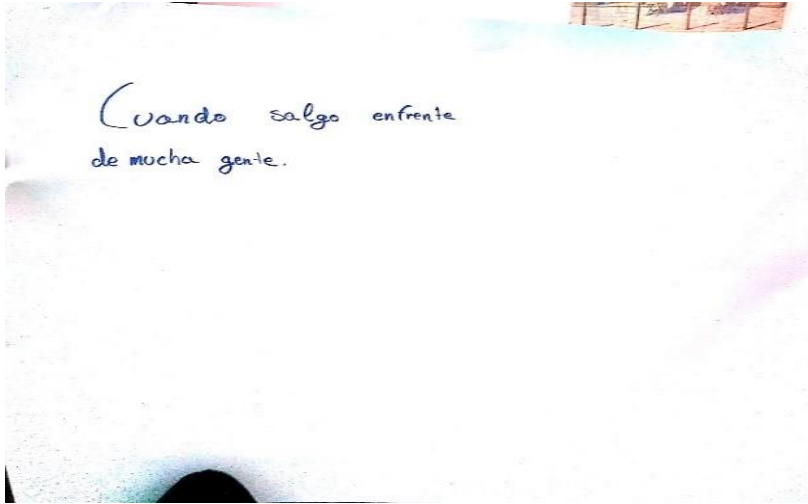 Cuando salgo enfrente
de mucha gente.